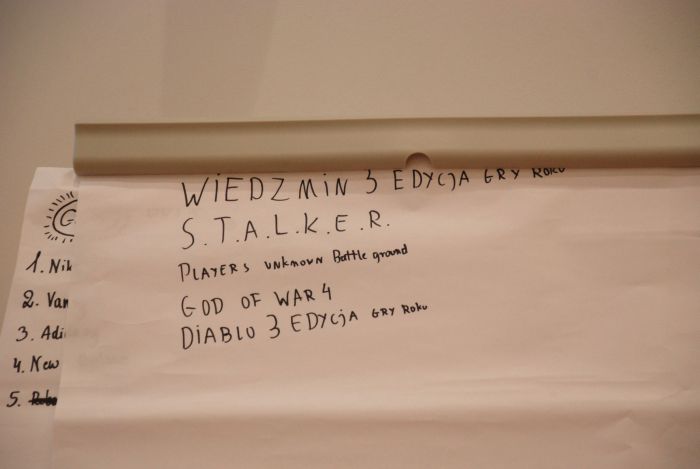 WIEDZMIN 3 EDYCJA GRY ROKU
S.T.A.L.K.E.R.
PLAYERS UNKNOWN Battle ground
GOD OF WAR 4
DIABLO 3 EDYCJA GRY ROKU
G
1. Nik
2. Van
3. Adi
4. New
5.